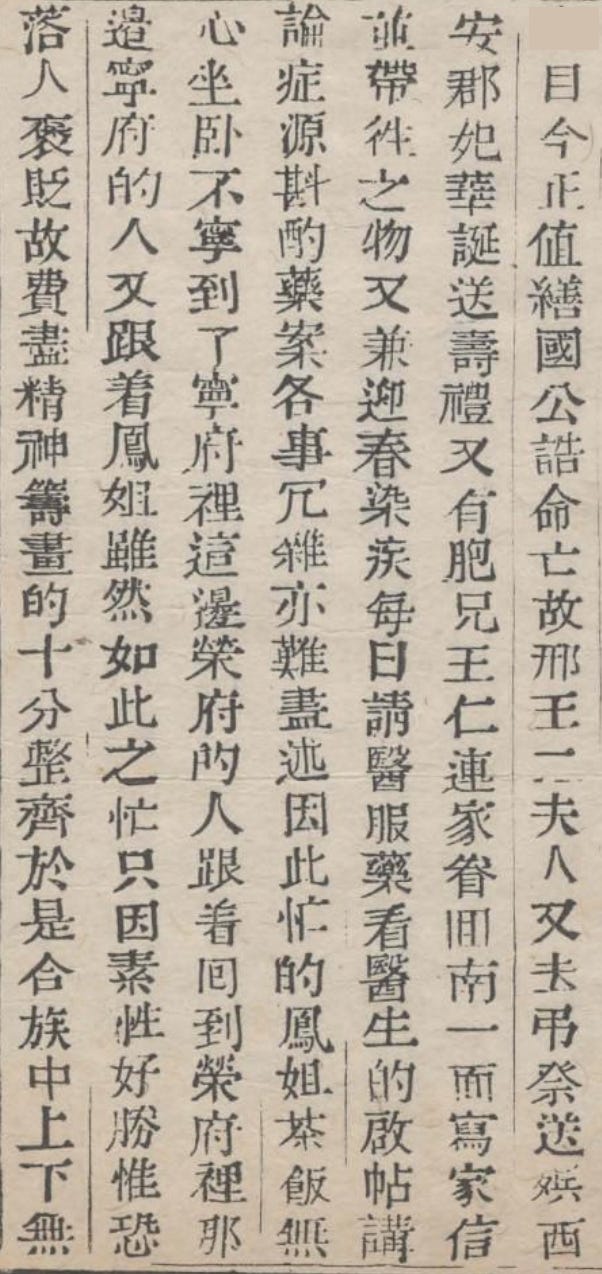 目今正值繕國公誥命亡故邢王二夫人又去弔祭送殯西
安郡妃華誕送壽禮又有胞兄王仁連家眷囬南一面寫家信
並帶徃之物又兼迎春染疾每日請醫服藥看醫生的啟帖講
論症源斟酌藥案各事冗雜亦難盡述因此忙的鳳姐茶飯無
心坐卧不寧到了寧府裡這邊榮府的人跟着囘到榮府裡那
邉寧府的人又跟着鳳姐雖然如此之忙只因素性好勝惟恐
落人褒貶故費盡精神籌畫的十分整齊於是合族中上下無